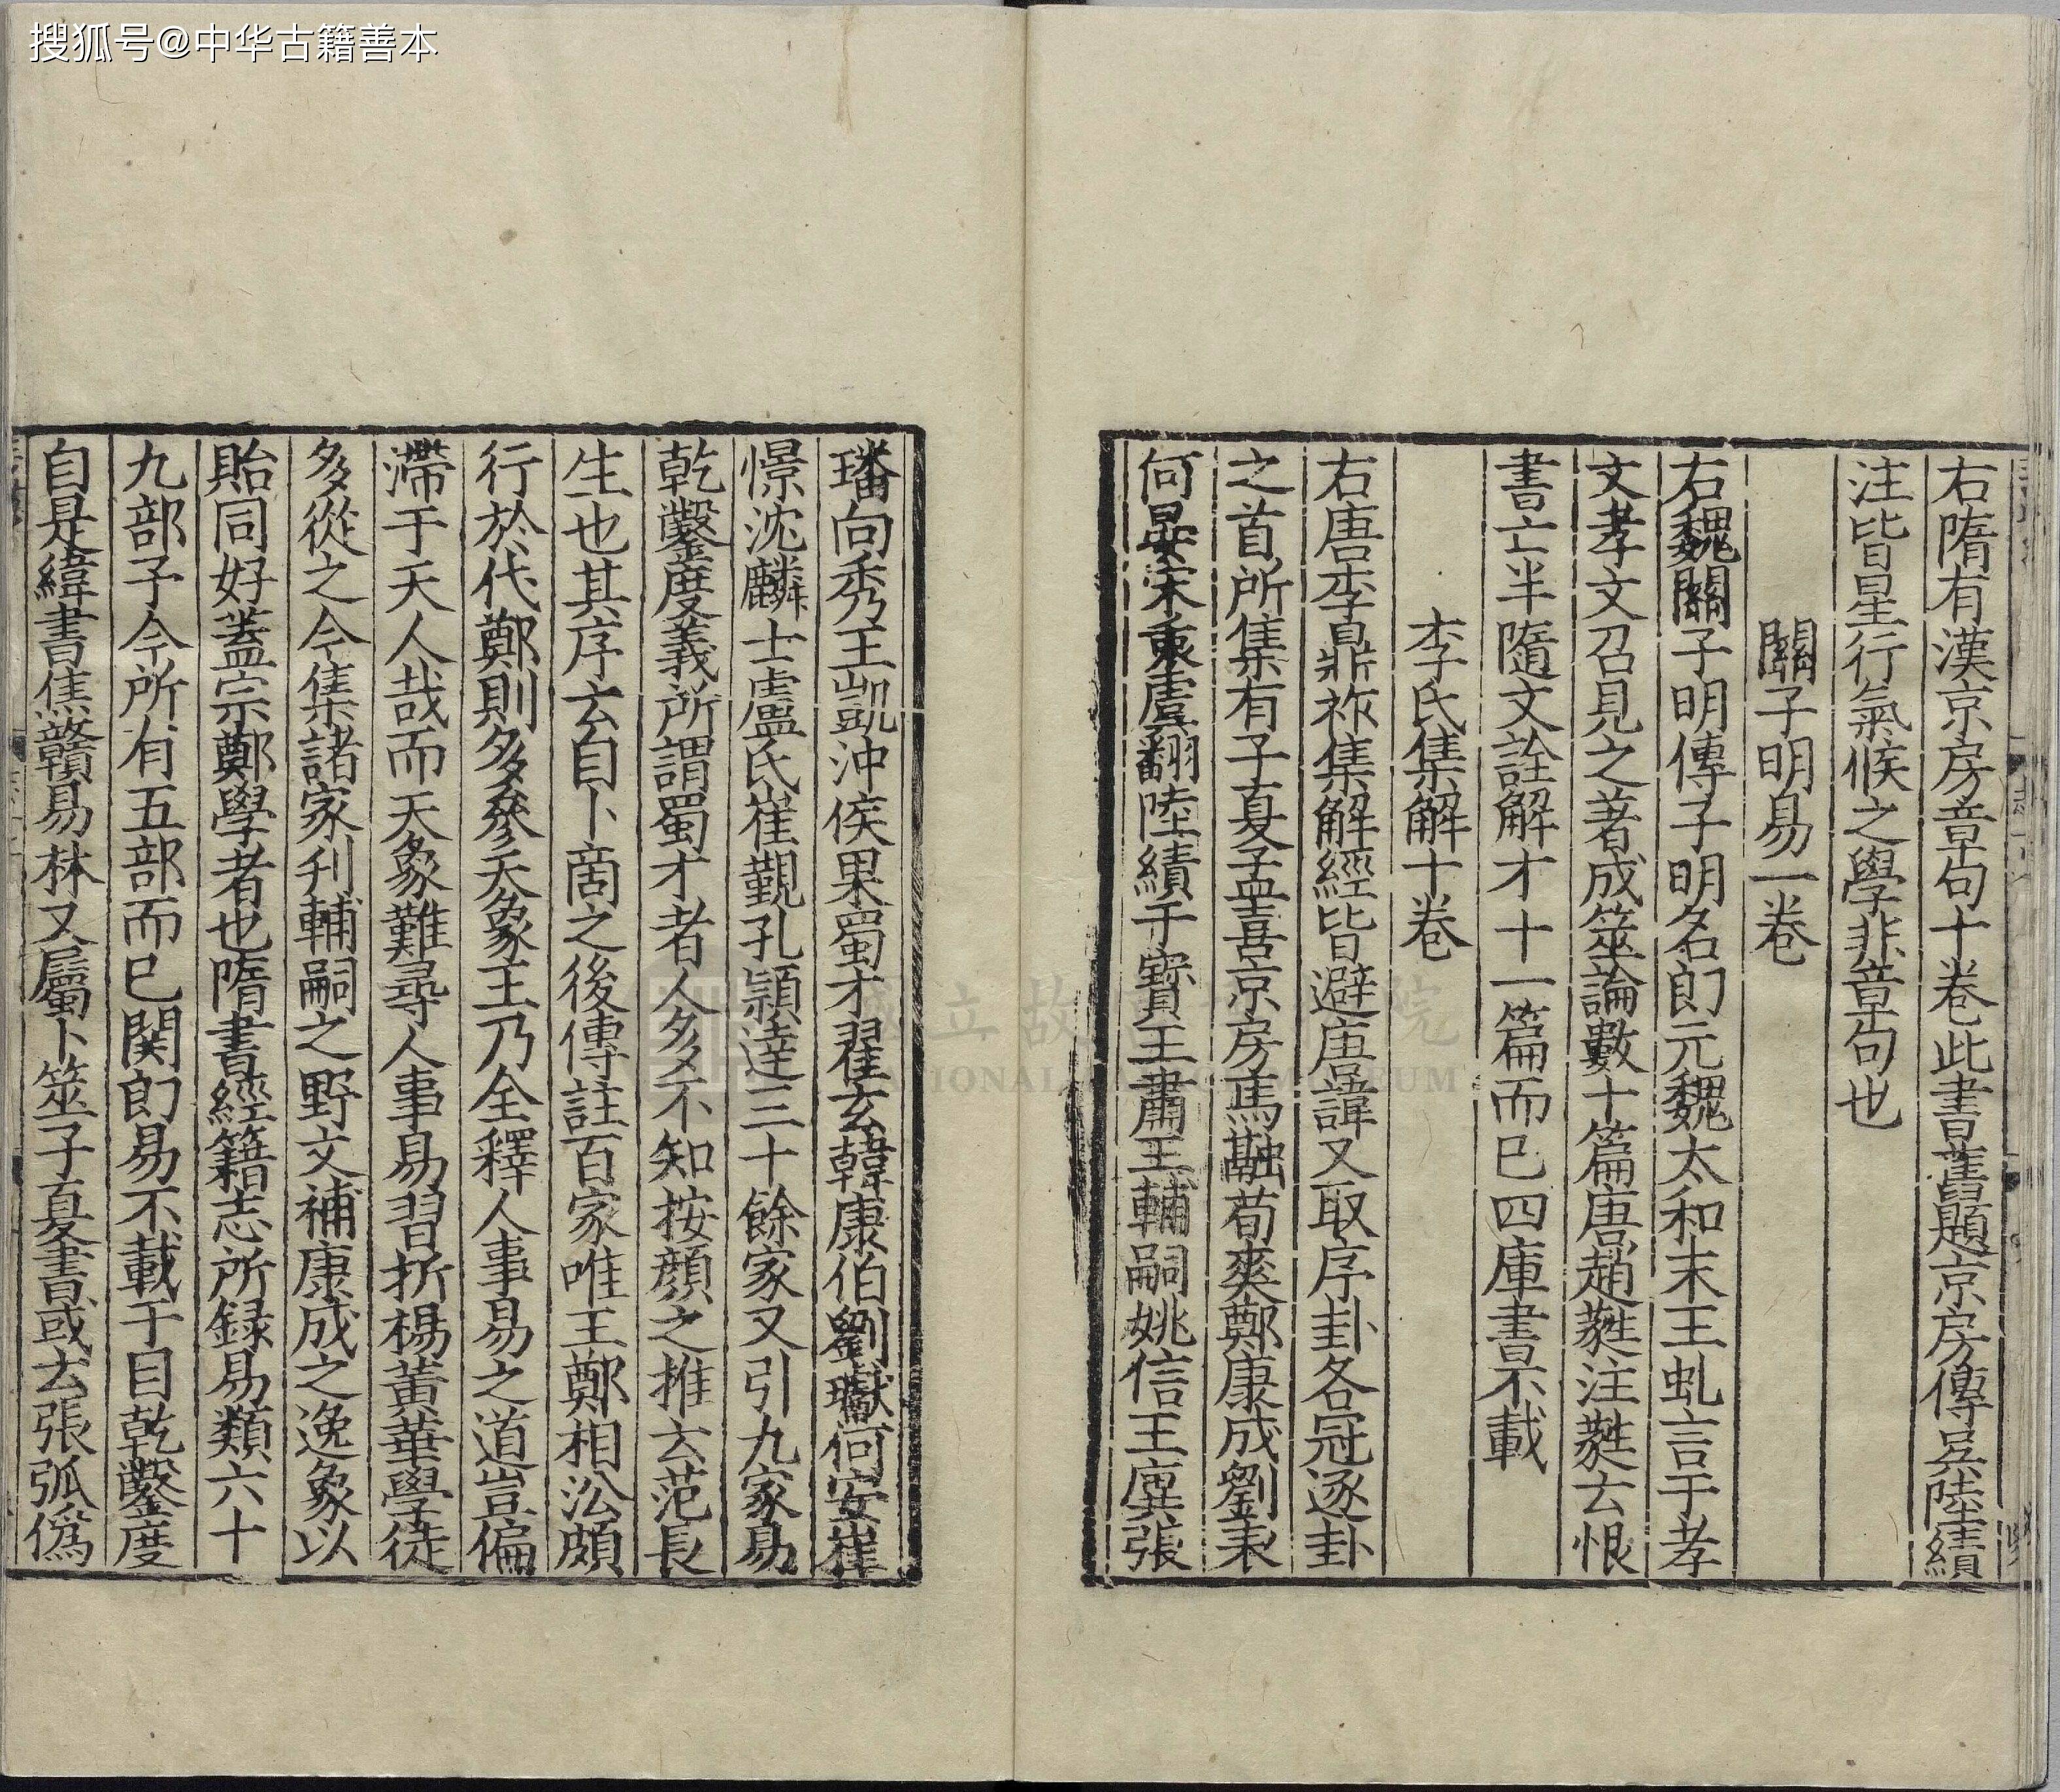 搜狐号@中华古籍善本
右隋有漢京房章句十卷此書舊題京房傳吳陸績
注皆星行氣候之學非章句也
關子明易一卷
右魏關子明傳子明名朗元魏太和末王虬言于孝
文孝文召見之著成筮論數十篇唐趙蕤注蕤云恨
書亡半隨文詮解才十一篇而已四庫書不載
李氏集解十卷
右唐李鼎祚集解經皆避唐諱又取序卦各冠逐卦
之首所集有子夏孟喜京房馬融荀爽鄭康成劉表
何晏宋衷虞翻陸績干寶王肅王輔嗣姚信王廙張
璠向秀王凱沖侯果蜀才翟玄韓康伯劉瓛何安崔
憬沈麟士盧氏崔覲孔穎達三十餘家又引九家易
乾鑿度義所謂蜀才者人多不知按顏之推云范長
生也其序云自卜商之後傳註百家唯王鄭相沿頗
行於代鄭則多參天象王乃全釋人事易之道豈偏
滯于天人哉而天象難尋人事易習折楊黃華學徒
多從之今集諸家刋輔嗣之野文補康成之逸象以
貽同好蓋宗鄭學者也隋書經籍志所録易類六十
九部子今所有五部而已関朗易不載于目乾鑿度
自是緯書焦贛易林又屬卜筮子夏書或云張弧偽
國立故宮博物院
NATIONAL PALACE MUSEUM